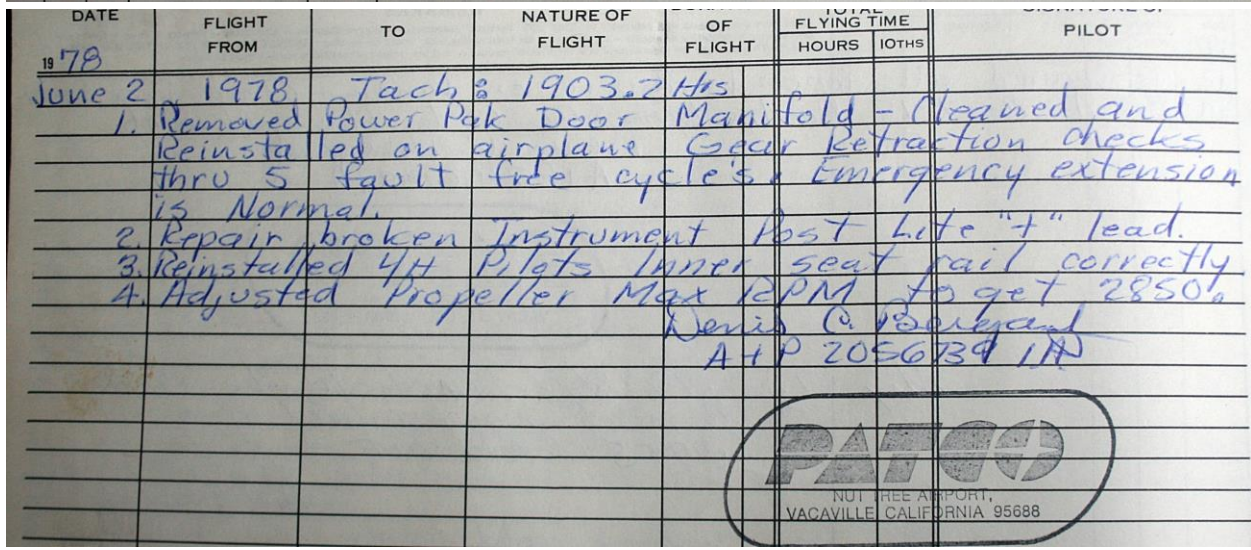 DATE
FLIGHT FROM
TO
NATURE OF FLIGHT
OF FLIGHT
TOTAL FLYING TIME
HOURS 10THS
SIGNATURE OF PILOT
1978
June 2 1978 Tach: 1903.2 Hrs
1. Removed Power Pak Door Manifold - Cleaned and
Reinstalled on airplane Gear Retraction checks
thru 5 fault free cycle's. Emergency extension
is Normal.
2. Repair broken Instrument Post Lite "+" lead.
3. Reinstalled Pilots Inner seat rail correctly
4. Adjusted Propeller Max RPM to get 2850.
Denis
A+P 2056739 IA
PATCO
NUT TREE AIRPORT,
VACAVILLE CALIFORNIA 95688